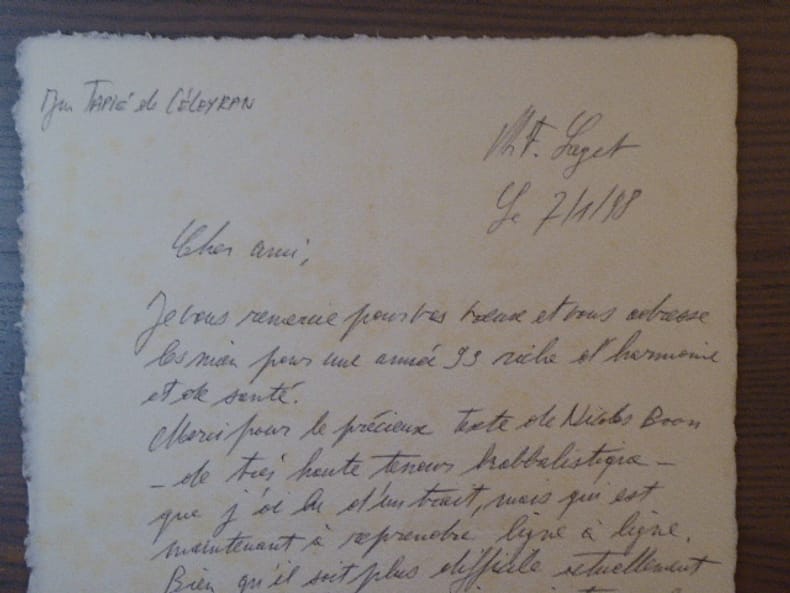 Jean TAPIÉ de CÉLEYRAN
Mt F. Laget
Le 7/1/98
Cher ami,
Je vous remercie pour vos voeux et vous adresse
les mien pour une année 99 riche d'harmonie
et de santé.
Merci pour le précieux texte de Nicolas Boon
– de très haute teneur kabbalistique –
que j'ai lu d'un trait, mais qui est
maintenant à reprendre ligne à ligne.
Bien qu'il soit plus difficile actuellement